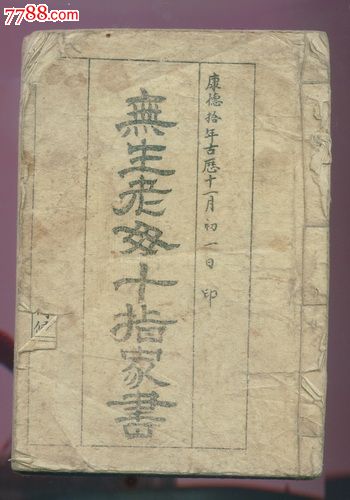 7788.com
康德拾年古历十一月初一日印
無生老母十指家書